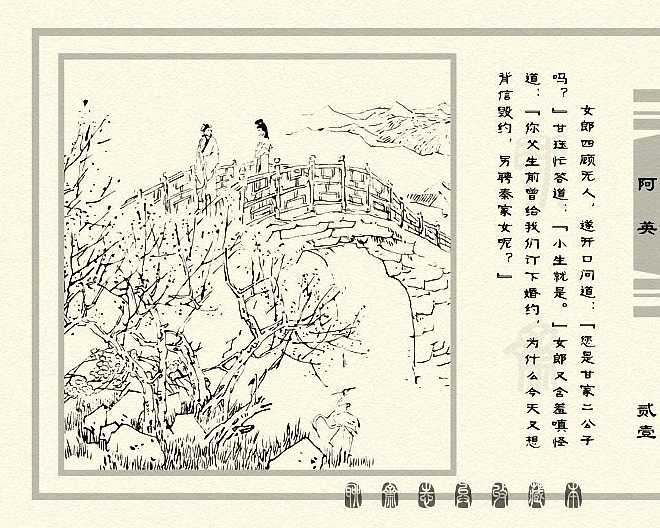 女郎四顾无人，遂开口问道：「您是甘家二公子
吗？」甘珏忙答道：「小生就是。」女郎又含羞嗔怪
道：「你父生前曾给我们订下婚约，为什么今天又想
背信毁约，另聘秦家女呢？」
阿英
贰壹
聊斋志异收藏本